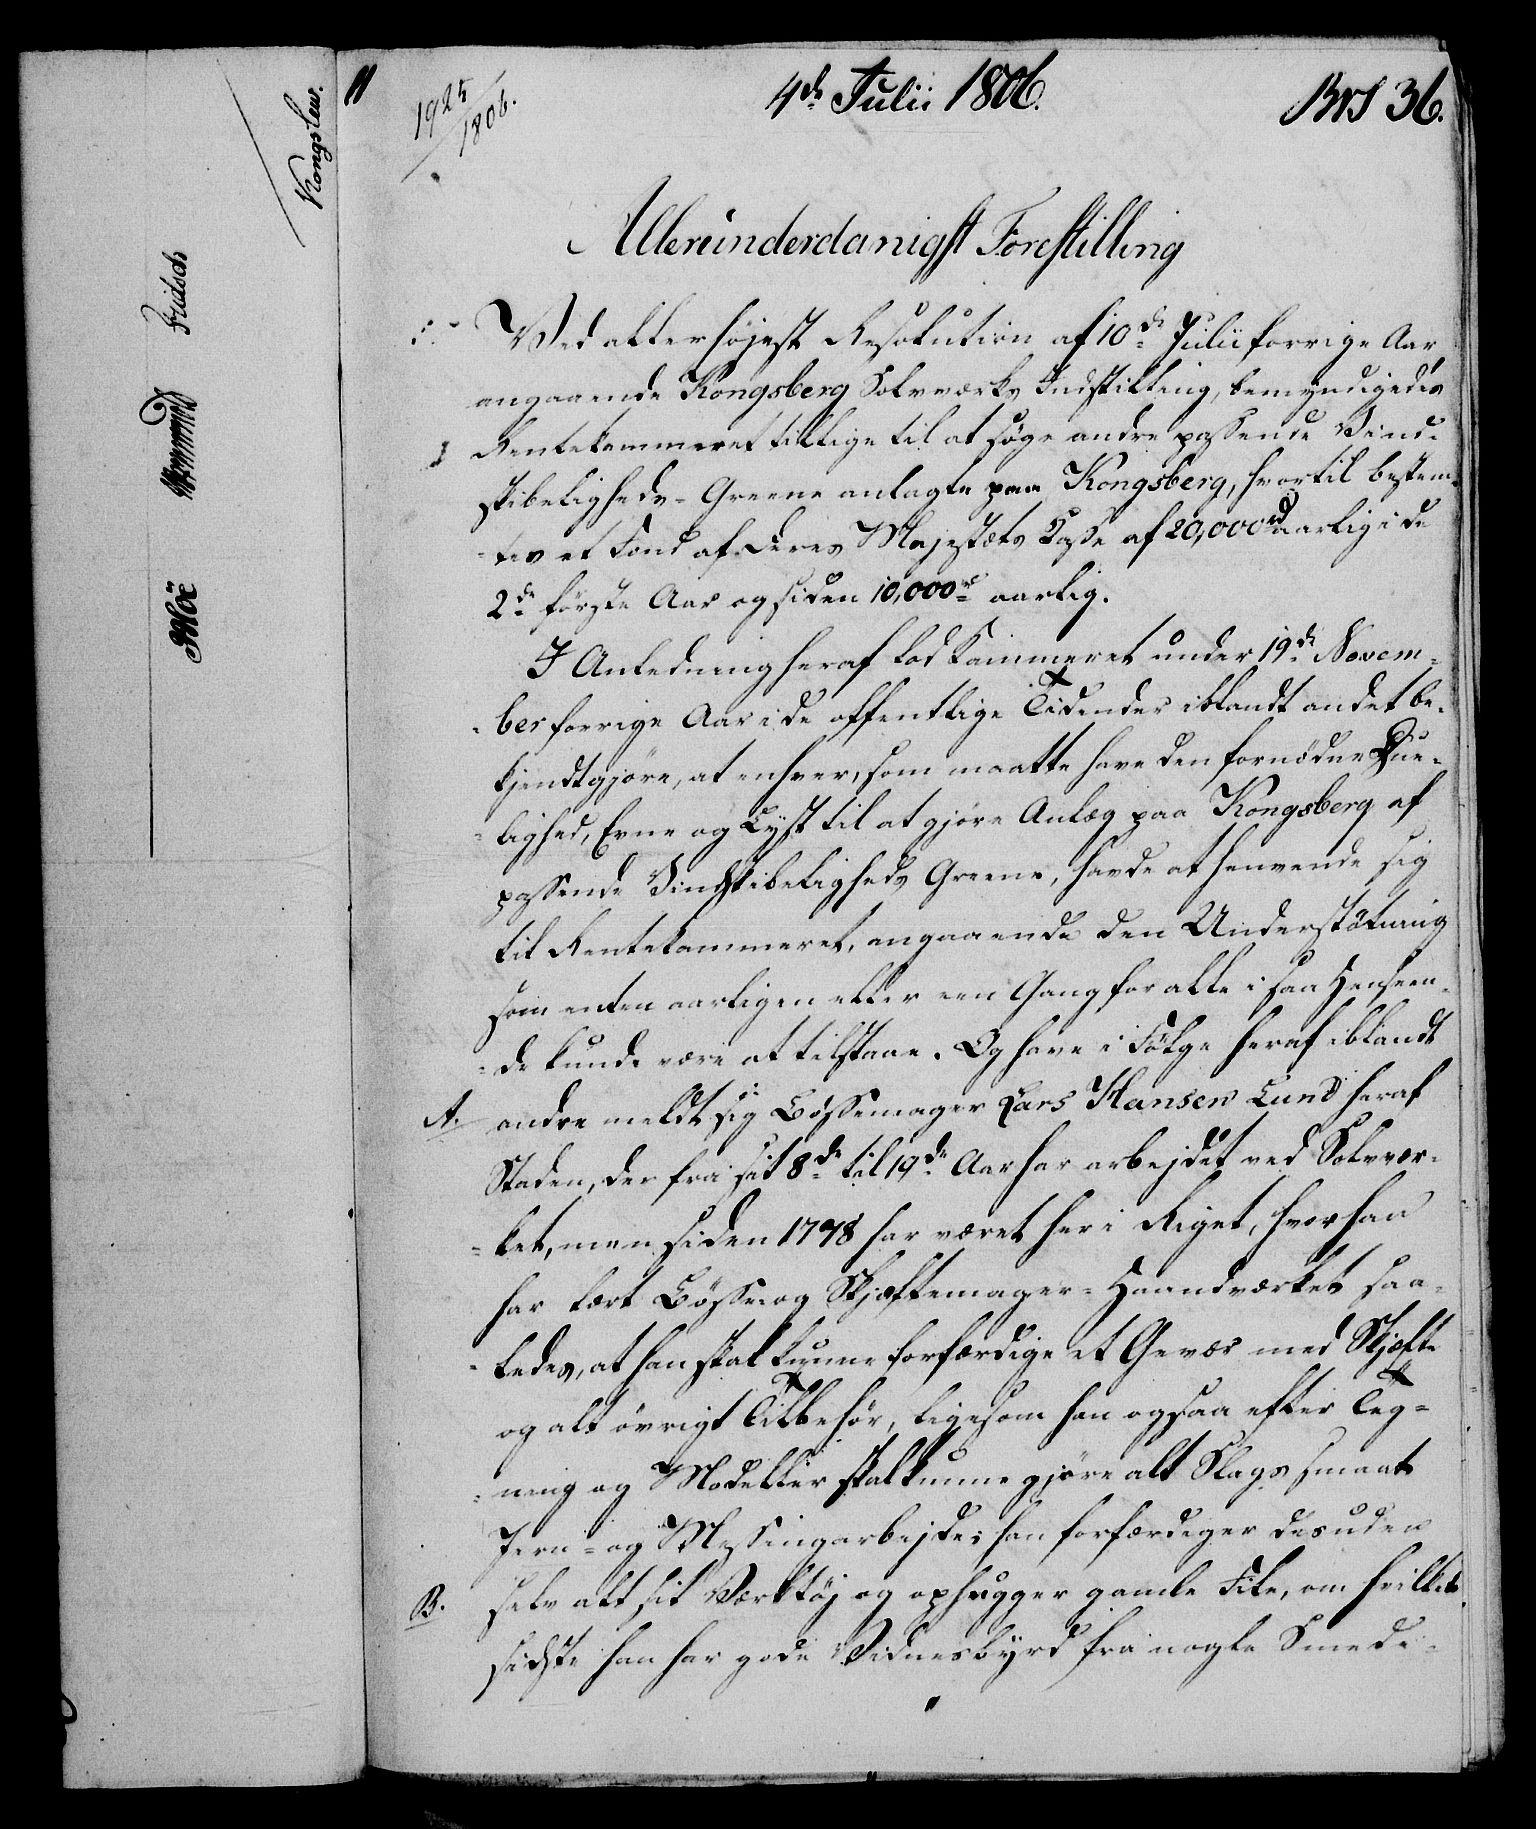 1925/1806.
4de Julii 1806.
BrS 36.
Allerunderdanigst Forestilling
Ved allerhøjest Resolution af 10de Julii forrige Aar,
angaaende Kongsberg Sølvværks Indstilling, bemyndigedes
Rentekammeret tillige til at søge andre passende Vind-
skibeligheds-Greene anlagte paa Kongsberg, hvortil bestem-
-tes et Fond af Deres Majestæts Kasse af 20,000rd aarlig i de
2de første Aar og siden 10,000rd aarlig.
I Anledning heraf lod Kammeret under 19de Novem-
-ber forrige Aar i de offentlige Tidender iblandt andet be-
kjendtgjøre, at enhver, som maatte have den fornødne Due-
-lighed, Evne og Lyst til at gjøre Anlæg paa Kongsberg af
passende Vindskibeligheds Greene, havde at henvende sig
til Rentekammeret, angaaende den Understøtning
som enten aarligen eller een Gang for alle i saa Henseen-
-de kunde være at tilstaae. Og have i Følge heraf iblandt
A. andre meldt sig Bøssemager Lars Hansen Lund heraf
Staden, der fra sit 8de til 19de Aar har arbejdet ved Sølvvær-
-ket, men siden 1778 har været her i Riget, hvor han
har lært Bøsse og Skjæftemager-Haandværket saa-
-ledes, at han skal kunne forfærdige et Gevær med Skjæfte
og alt øvrigt Tilbehør, ligesom han ogsaa efter Teg-
-ning og Modeller skal kunne gjøre alt Slags smaat
Jern- og Messingarbejde; han forfærdiger desuden
B. selv alt sit Værktøj og ophugger gamle File, om hvilket
sidste han har gode Vidnesbyrd fra nogle Smede-
Kongslew.
Fridsch
Wormskiold
Möe